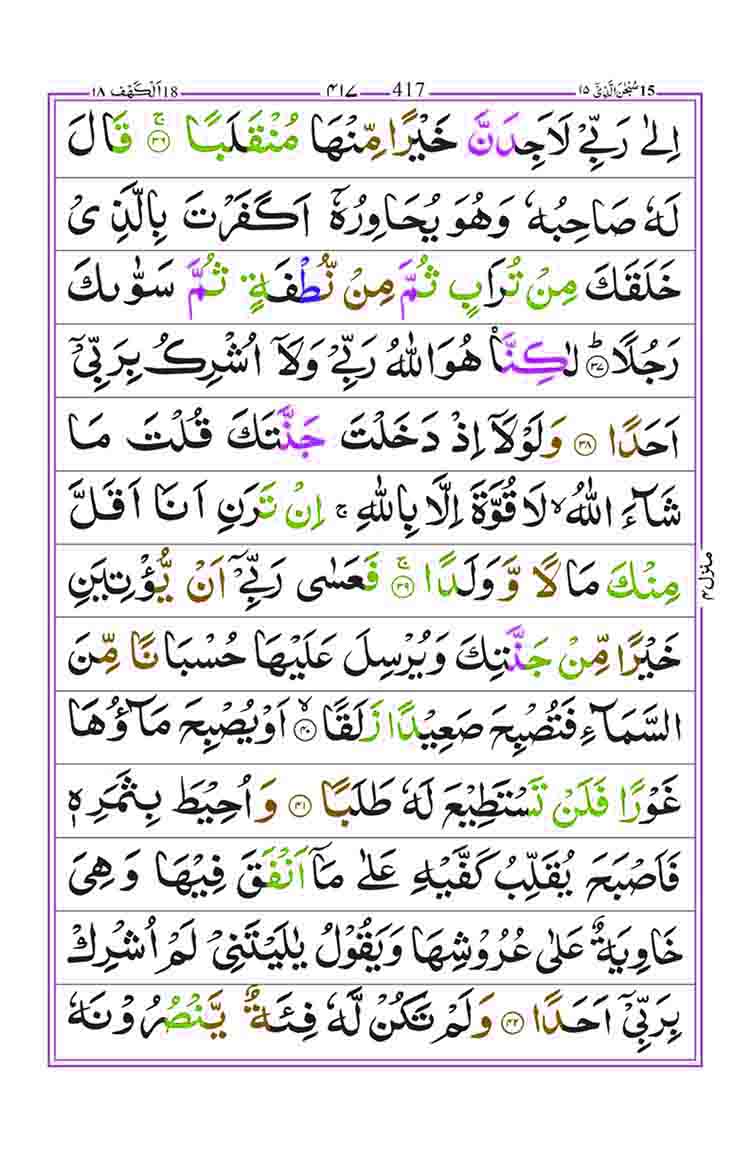 ١٨ اَلْكَهْف 18 ٤١٧ 417 سُبْحٰنَ الَّذِیْۤ ١٥ 15
اِلٰى رَبِّیْ لَاَجِدَنَّ خَیْرًا مِّنْهَا مُنْقَلَبًا ۚ‏﴿۳۶﴾ قَالَ
لَهٗ صَاحِبُهٗ وَهُوَ یُحَاوِرُهٗۤ اَكَفَرْتَ بِالَّذِیْ
خَلَقَكَ مِنْ تُرَابٍ ثُمَّ مِنْ نُّطْفَةٍ ثُمَّ سَوّٰىكَ
رَجُلًا ؕ‏﴿۳۷﴾ لٰكِنَّا۠ هُوَ اللّٰهُ رَبِّیْ وَلَاۤ اُشْرِكُ بِرَبِّیْۤ
اَحَدًا ‏﴿۳۸﴾ وَلَوْلَاۤ اِذْ دَخَلْتَ جَنَّتَكَ قُلْتَ مَا
شَآءَ اللّٰهُ ۙ لَا قُوَّةَ اِلَّا بِاللّٰهِ ۚ اِنْ تَرَنِ اَنَا اَقَلَّ
مِنْكَ مَالًا وَّ وَلَدًا ۚ‏﴿۳۹﴾ فَعَسٰى رَبِّیْۤ اَنْ یُّؤْتِیَنِ
خَیْرًا مِّنْ جَنَّتِكَ وَیُرْسِلَ عَلَیْهَا حُسْبَانًا مِّنَ
السَّمَآءِ فَتُصْبِحَ صَعِیْدًا زَلَقًا ۙ‏﴿۴۰﴾ اَوْ یُصْبِحَ مَآؤُهَا
غَوْرًا فَلَنْ تَسْتَطِیْعَ لَهٗ طَلَبًا ‏﴿۴۱﴾ وَاُحِیْطَ بِثَمَرِهٖ
فَاَصْبَحَ یُقَلِّبُ كَفَّیْهِ عَلٰى مَاۤ اَنْفَقَ فِیْهَا وَهِیَ
خَاوِیَةٌ عَلٰى عُرُوْشِهَا وَیَقُوْلُ یٰلَیْتَنِیْ لَمْ اُشْرِكْ
بِرَبِّیْۤ اَحَدًا ‏﴿۴۲﴾ وَلَمْ تَكُنْ لَّهٗ فِئَةٌ یَّنْصُرُوْنَهٗ
منزل ٤